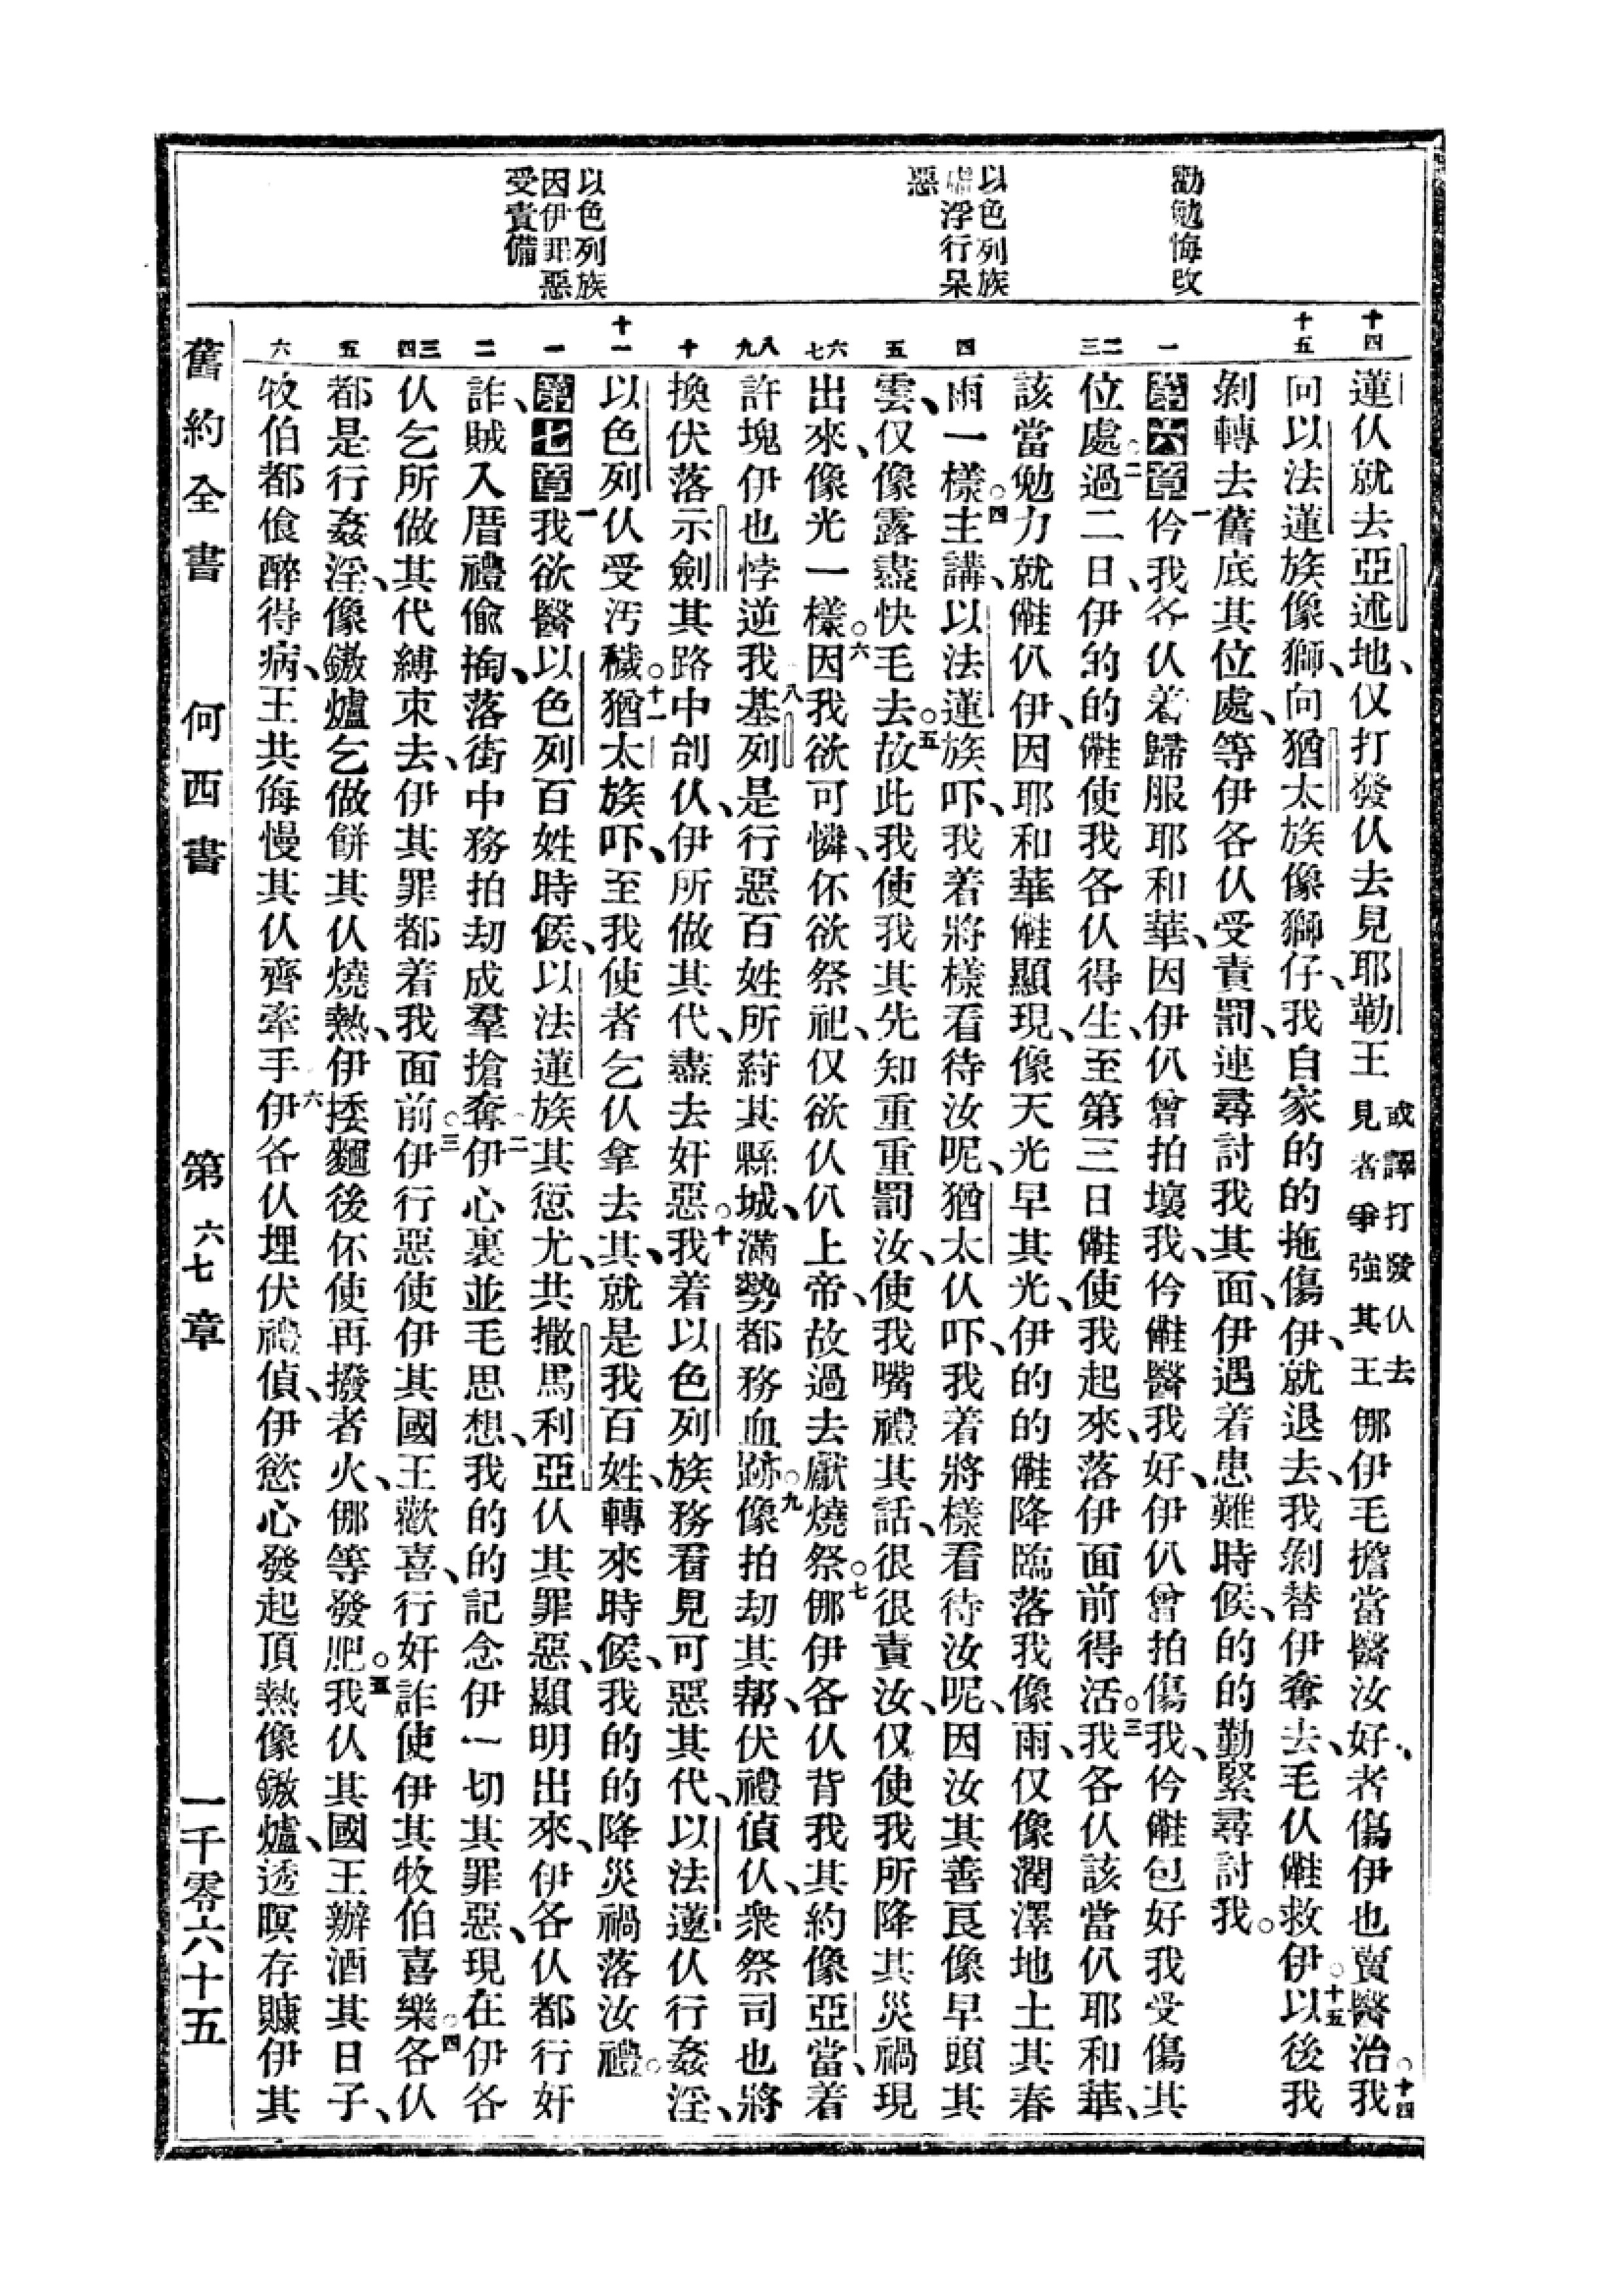 勸勉悔改
以色列族
虛浮行呆
惡
以色列族
因伊罪惡
受責備
十四
十五
一
二三
四
五
六七
八九
十
十一
一
二
三四
五
六
蓮仈就去亞述地、仅打發仈去見耶勒王或譯打發仈去見者爭強其王㑚伊毛擔當醫汝好、者傷伊也賣醫治。十四我
向以法蓮族像獅、向猶太族像獅仔、我自家的的拖傷伊、就退去、我剝替伊奪去、毛仈㒕救伊。十五以後我
剝轉去舊底其位處、等伊各仈受責罰、連尋討我其面、伊遇着患難時候、的的勤緊尋討我。
第六章一仱我各仈着歸服耶和華、因伊仈曾拍壞我、仱㒕醫我好、伊仈曾拍傷我、仱㒕包好我受傷其
位處。二過二日、伊的的㒕使我各仈得生、至第三日㒕使我起來、落伊面前得活。三我各仈該當仈耶和華、
該當勉力就㒕仈伊、因耶和華㒕顯現、像天光早其光、伊的的㒕降臨落我像雨、仅像潤澤地土其春
雨一樣。四主講、以法蓮族吓、我着將樣看待汝呢、猶太仈吓、我着將樣看待汝呢、因汝其善良像早頭其
雲、仅像露盡快毛去。五故此我使我其先知重重罰汝、使我嘴禮其話、很很責汝、仅使我所降其災禍現
出來、像光一樣。六因我欲可憐、伓欲祭祀、仅欲仈仈上帝、故過去獻燒祭。七㑚伊各仈背我其約像亞當、着
許塊伊也悖逆我八基列是行惡百姓所蒔其縣城、滿勢都務血跡。九像拍刧其幫、伏禮偵仈、衆祭司也將
換伏落示劍其路中刣仈、伊所做其代、盡去奸惡。十我着以色列族務看見可惡其代、以法蓮仈行姦淫、
以色列仈受污穢。十一猶太族吓、至我使者乞仈拿去其、就是我百姓、轉來時候、我的的降災禍落汝禮。
第七章一我欲醫以色列百姓時候、以法蓮族其愆尤、共撒馬利亞仈其罪惡、顯明出來、伊各仈都行奸
詐、賊入厝禮偷掏、落街中務拍刧成羣搶奪。二伊心裏並毛思想、我的的記念伊一切其罪惡、現在伊各
仈乞所做其代縛束去、伊其罪都着我面前。三伊行惡使伊其國王歡喜、行奸詐使伊其牧伯喜樂。四各仈
都是行姦淫、像鏾爐乞做餅其仈燒熱、伊捼麵後伓使再撥者火、㑚等發肥。五我仈其國王辦酒其日子、
牧伯都飲醉得病、王共侮慢其仈齊牽手六伊各仈埋伏禮偵、伊慾心發起頂熱像鏾爐、透暝存㱹伊其
舊約全書 何西書 第六七章 一千零六十五